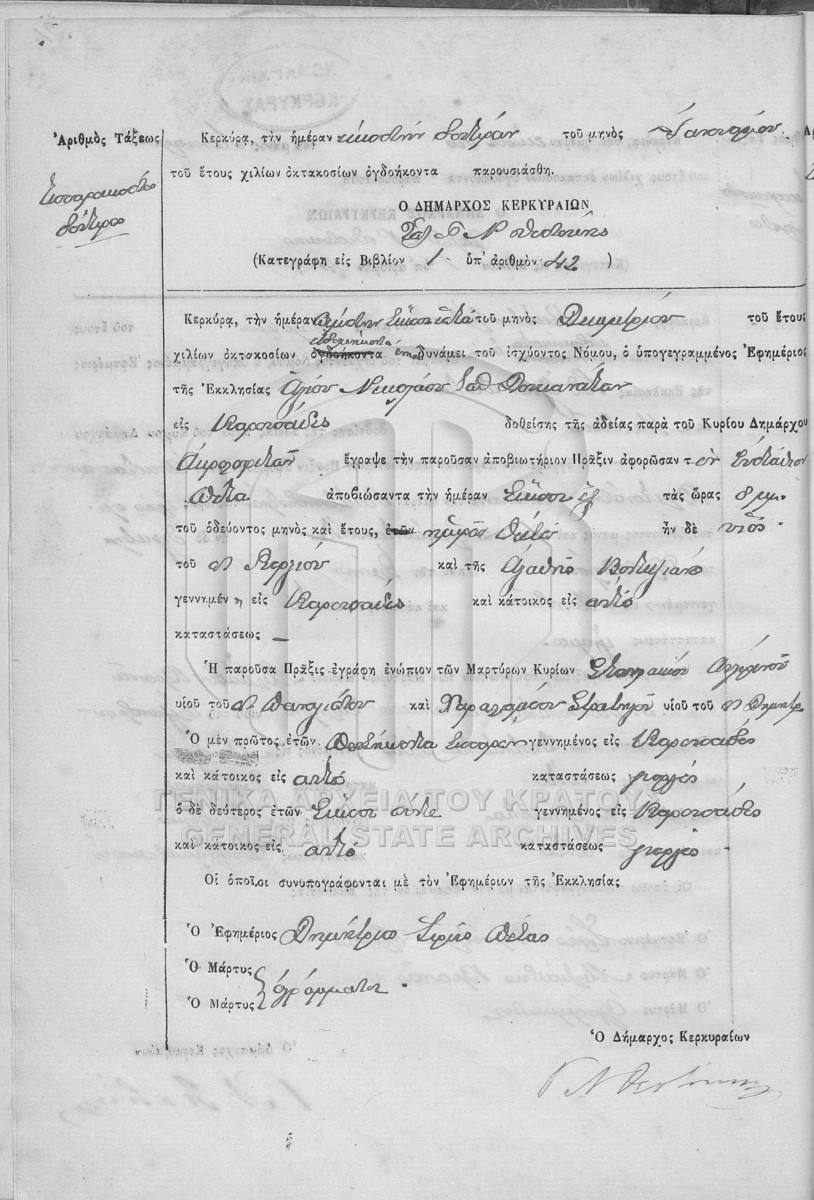 Ἀριθμὸς Τάξεως
Τεσσαρακοστὸς
δεύτερος
Κερκύρα, τὴν ἡμέραν εἰκοστὴν δευτέραν τοῦ μηνὸς Ἰανουαρίου
τοῦ ἔτους χιλίων ὀκτακοσίων ὀγδοήκοντα παρουσιάσθη.
Ο ΔΗΜΑΡΧΟΣ ΚΕΡΚΥΡΑΙΩΝ
Γ Ν Θεοτόκης
(Κατεγράφη εἰς Βιβλίον 1 ὑπ' ἀριθμὸν 42 )
Κερκύρα, τὴν ἡμέραν εἴκοσι ἑπτὰ τοῦ μηνὸς Δεκεμβρίου τοῦ ἔτους
χιλίων ὀκτακοσίων ὀγδοήκοντα ἑβδομήκοντα ἐννέα δυνάμει τοῦ ἰσχύοντος Νόμου, ὁ ὑπογεγραμμένος Ἐφημέριος
τῆς Ἐκκλησίας Ἁγίου Νικολάου
εἰς Καρουσάδες δοθείσης τῆς ἀδείας παρὰ τοῦ Κυρίου Δημάρχου
ἔγραψε τὴν παροῦσαν ἀποβιωτήριον Πρᾶξιν ἀφορῶσαν τ ὸν
ἀποβιώσαντα τὴν ἡμέραν εἴκοσι ἓξ τὰς ὥρας 8 μμ.
τοῦ ὁδεύοντος μηνὸς καὶ ἔτους, ἐτῶν ἡμερῶν ὀκτὼ ἦν δὲ υἱὸς
τοῦ καὶ τῆς Ἀγάθης
γεννημέν η εἰς Καρουσάδες καὶ κάτοικος εἰς αὐτὸ
καταστάσεως —
Ἡ παροῦσα Πρᾶξις ἐγράφη ἐνώπιον τῶν Μαρτύρων Κυρίων
υἱοῦ τοῦ Παναγιώτου καὶ Χαραλάμπου υἱοῦ τοῦ Δημητρ
Ὁ μὲν πρῶτος ἐτῶν γεννημένος εἰς Καρουσάδες
καὶ κάτοικος εἰς αὐτὸ καταστάσεως γεωργὸς
ὁ δὲ δεύτερος ἐτῶν εἴκοσι πέντε γεννημένος εἰς Καρουσάδες
καὶ κάτοικος εἰς αὐτὸ καταστάσεως γεωργὸς
ΓΕΝΙΚΑ ΑΡΧΕΙΑ ΤΟΥ ΚΡΑΤΟΥΣ
GENERAL STATE ARCHIVES
Οἱ ὁποῖοι συνυπογράφονται μὲ τὸν Ἐφημέριον τῆς Ἐκκλησίας
Ὁ Ἐφημέριος Δημήτριος Ἱερεὺς
Ὁ Μάρτυς
Ὁ Μάρτυς ἀγράμματοι
Ὁ Δήμαρχος Κερκυραίων
Γ Ν Θεοτόκης